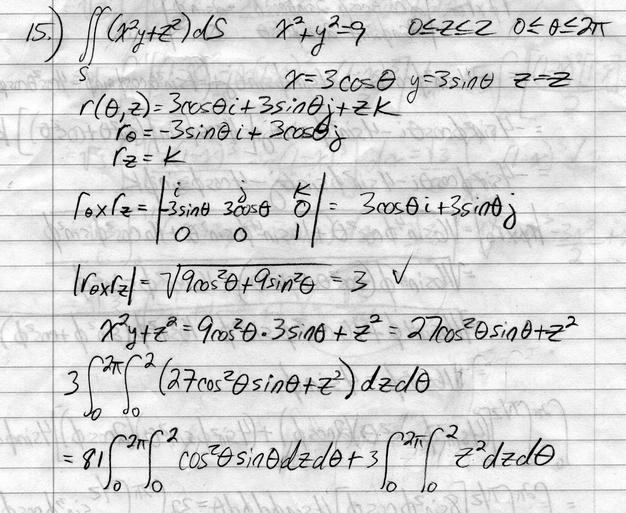 15.) ∬_S (x²y+z²)dS   x²+y²=9   0≤z≤2   0≤θ≤2π
x=3cosθ  y=3sinθ  z=z
r(θ,z)=3cosθi+3sinθj+zk
rθ=-3sinθi+3cosθj
rz=k
rθxrz= |i j k; -3sinθ 3cosθ 0; 0 0 1| = 3cosθi+3sinθj
|rθxrz|=√(9cos²θ+9sin²θ) =3 ✓
x²y+z²=9cos²θ·3sinθ+z²=27cos²θsinθ+z²
3∫₀^2π∫₀^2 (27cos²θsinθ+z²)dzdθ
=81∫₀^2π∫₀^2 cos²θsinθdzdθ+3∫₀^2π∫₀^2 z²dzdθ